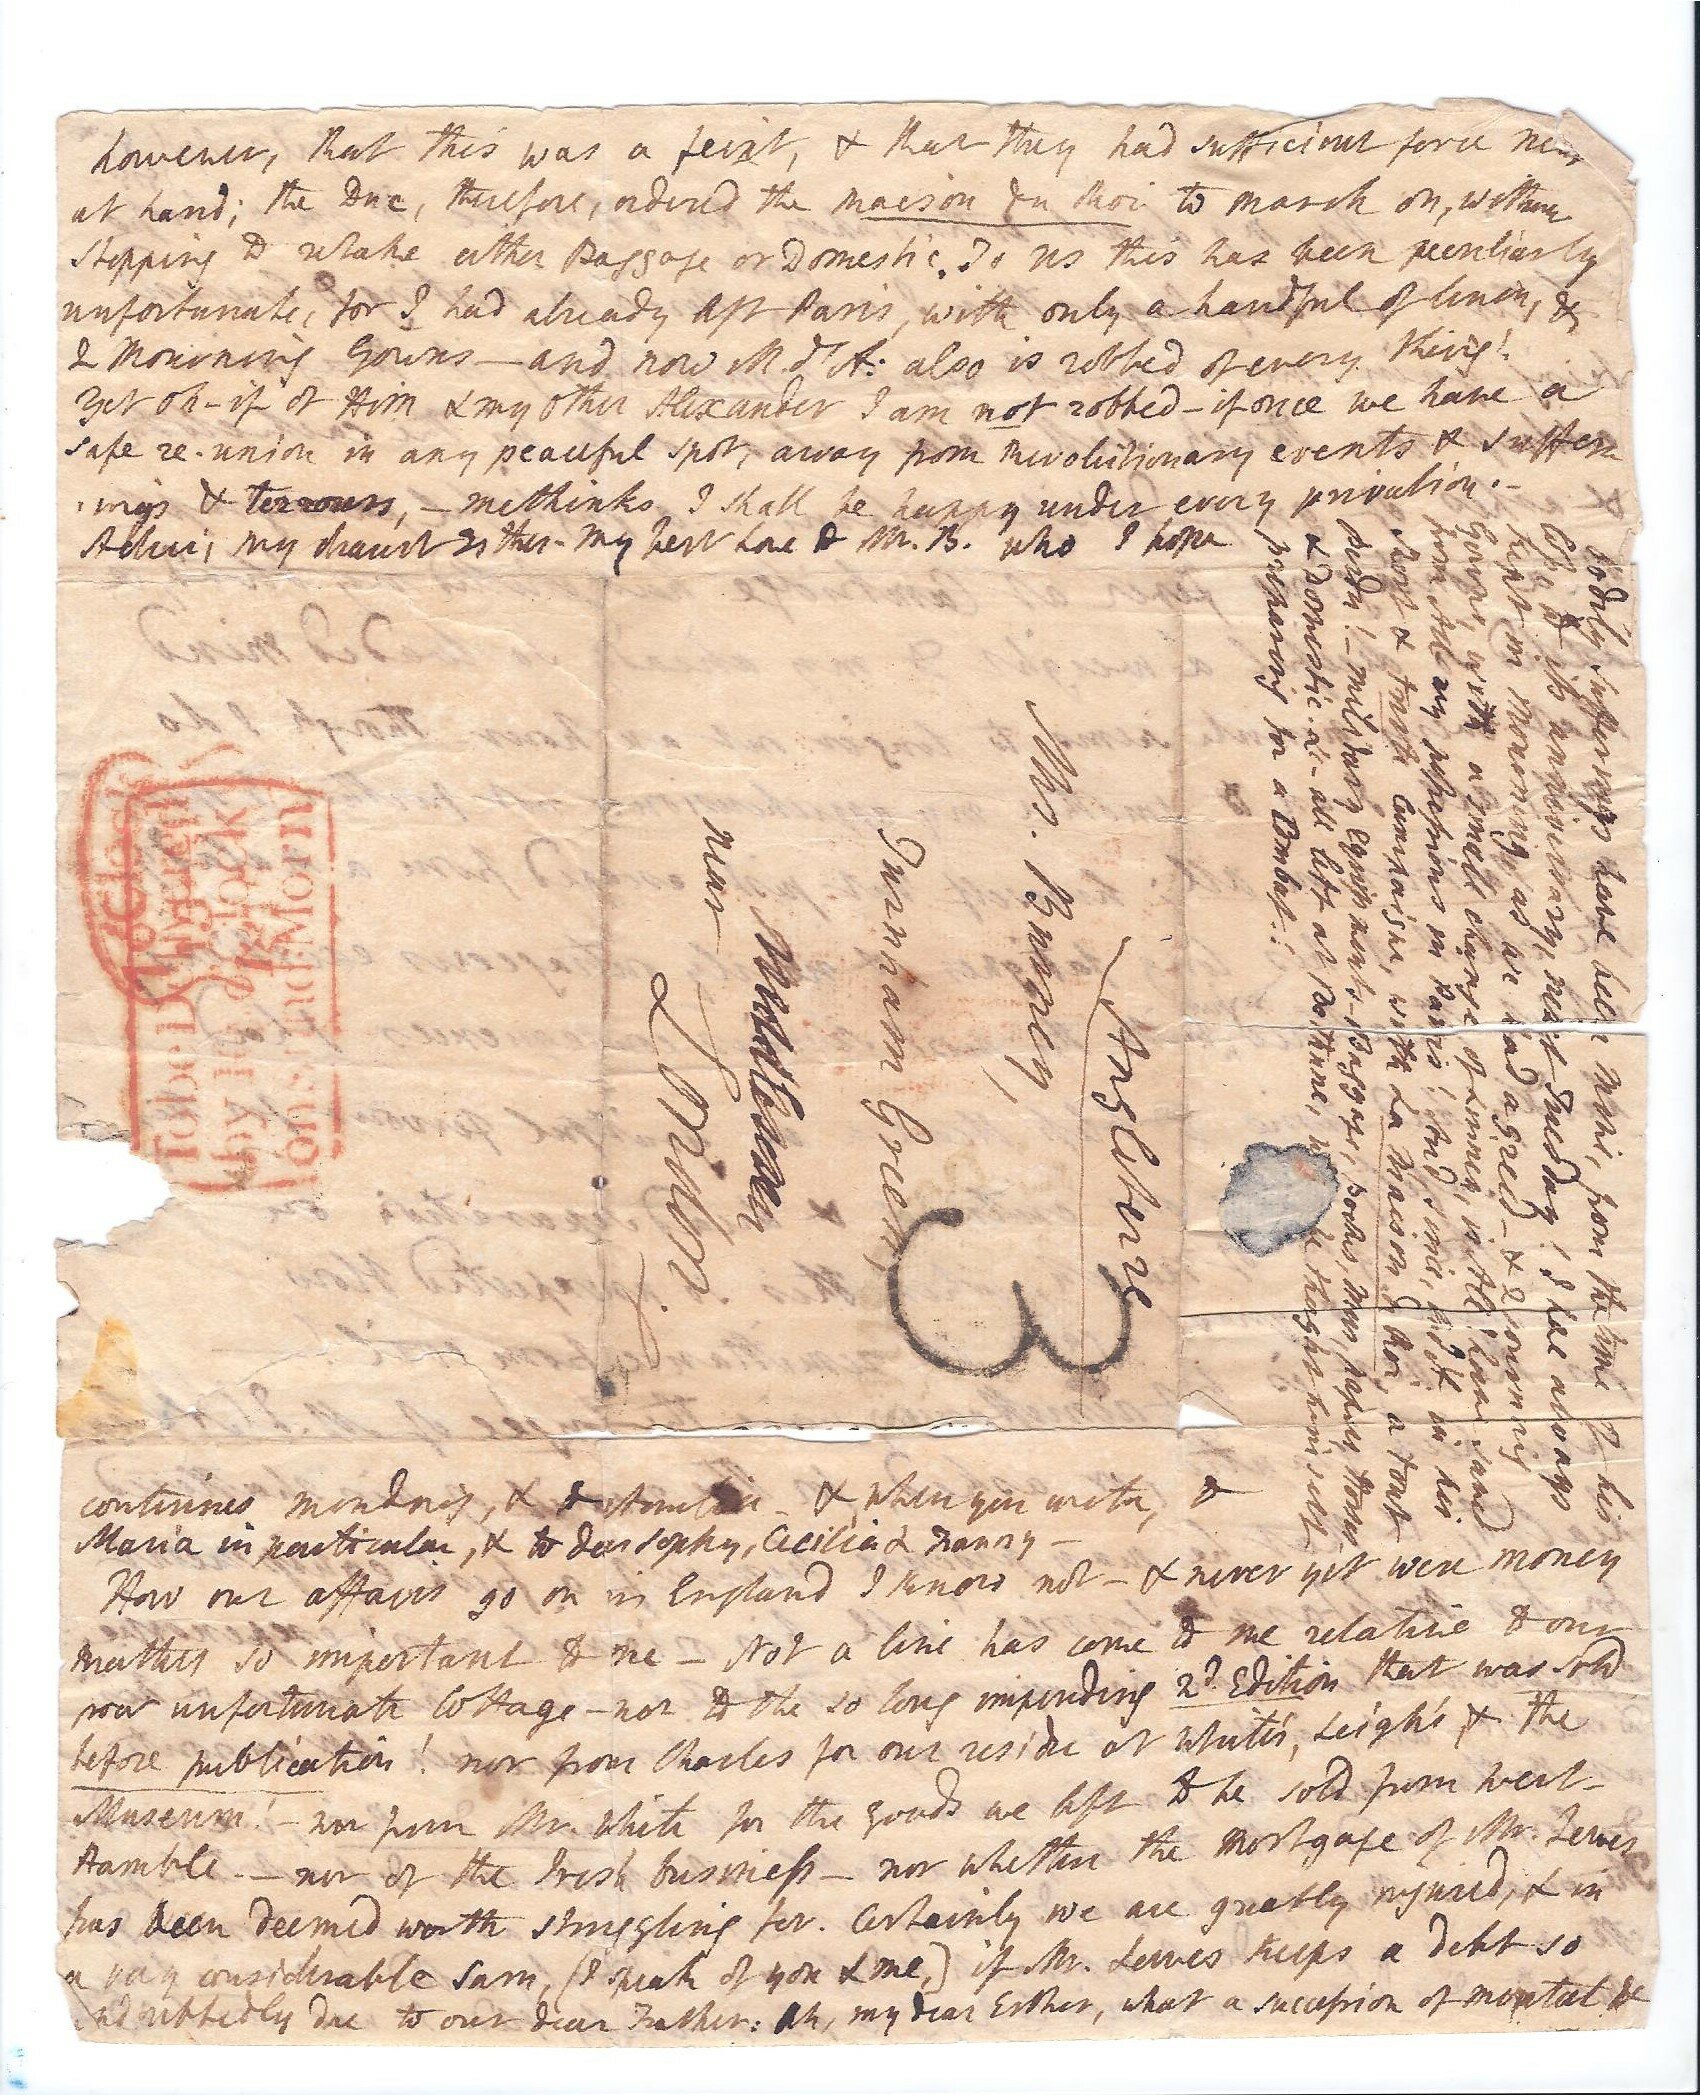 however, that this was a feint, & that they had sufficient force near
at hand; the Duc, therefore, ordered the maison du Roi to march on, without
stopping to retake either Baggage or Domestic. To us this has been peculiarly
unfortunate, for I had already left Paris, with only a handful of linen, &
2 Mourning Gowns — and now M. d'A. also is robbed of every thing!
Yet oh — if of Him & my other Alexander I am not robbed — if once we have a
safe re-union in any peaceful spot, away from Revolutionary events & suffer
ings & terrours, — methinks I shall be happy under every privation. —
Adieu, my dearest Esther — my best Love to Mr. B. who I hope
continues mending, & & when you write, to
Maria in particular, & to dear Sophy, Cecilia & Fanny —
How our affairs go on in England I know not — & never yet were money
matters so important to me — Not a line has come to me relative to our
poor unfortunate Cottage — nor to the so long impending 2d. Edition that was sold
before publication! nor from Charles for our residue at White's, Leigh's, & the
Museum! — nor from Mr. White for the goods we left to be sold from West-
Hamble. — nor of the Irish business — nor whether the Mortgage of Mr. Lewes
has been deemed worth struggling for. Certainly we are greatly injured, & in
a very considerable sum, (I speak of you & me,) if Mr. Lewes keeps a debt so
undoubtedly due to our dear Father. Ah, my dear Esther, what a succession of mental &
bodily sufferings have been mine, from the time of his
loss, of its anniversary, next Tuesday! I have always
kept in mourning, as we had agreed — & 2 mourning
Gowns, with a small change of Linnen, is All I have saved
from All my possessions in Paris! and, since, M. d'A. in his
short & campaign, with La Maison du Roi, a tout
perdu! — military Equipments — Baggage, books, Mss, papers, Horses,
& Domestic. — all left at Bethune, he thought himself
preparing for a Combat!
Angleterre
Mrs. Burney,
Turnham Green,
near London.
3
To be Delivered
by 10 o'Clock
on Sund. Morn